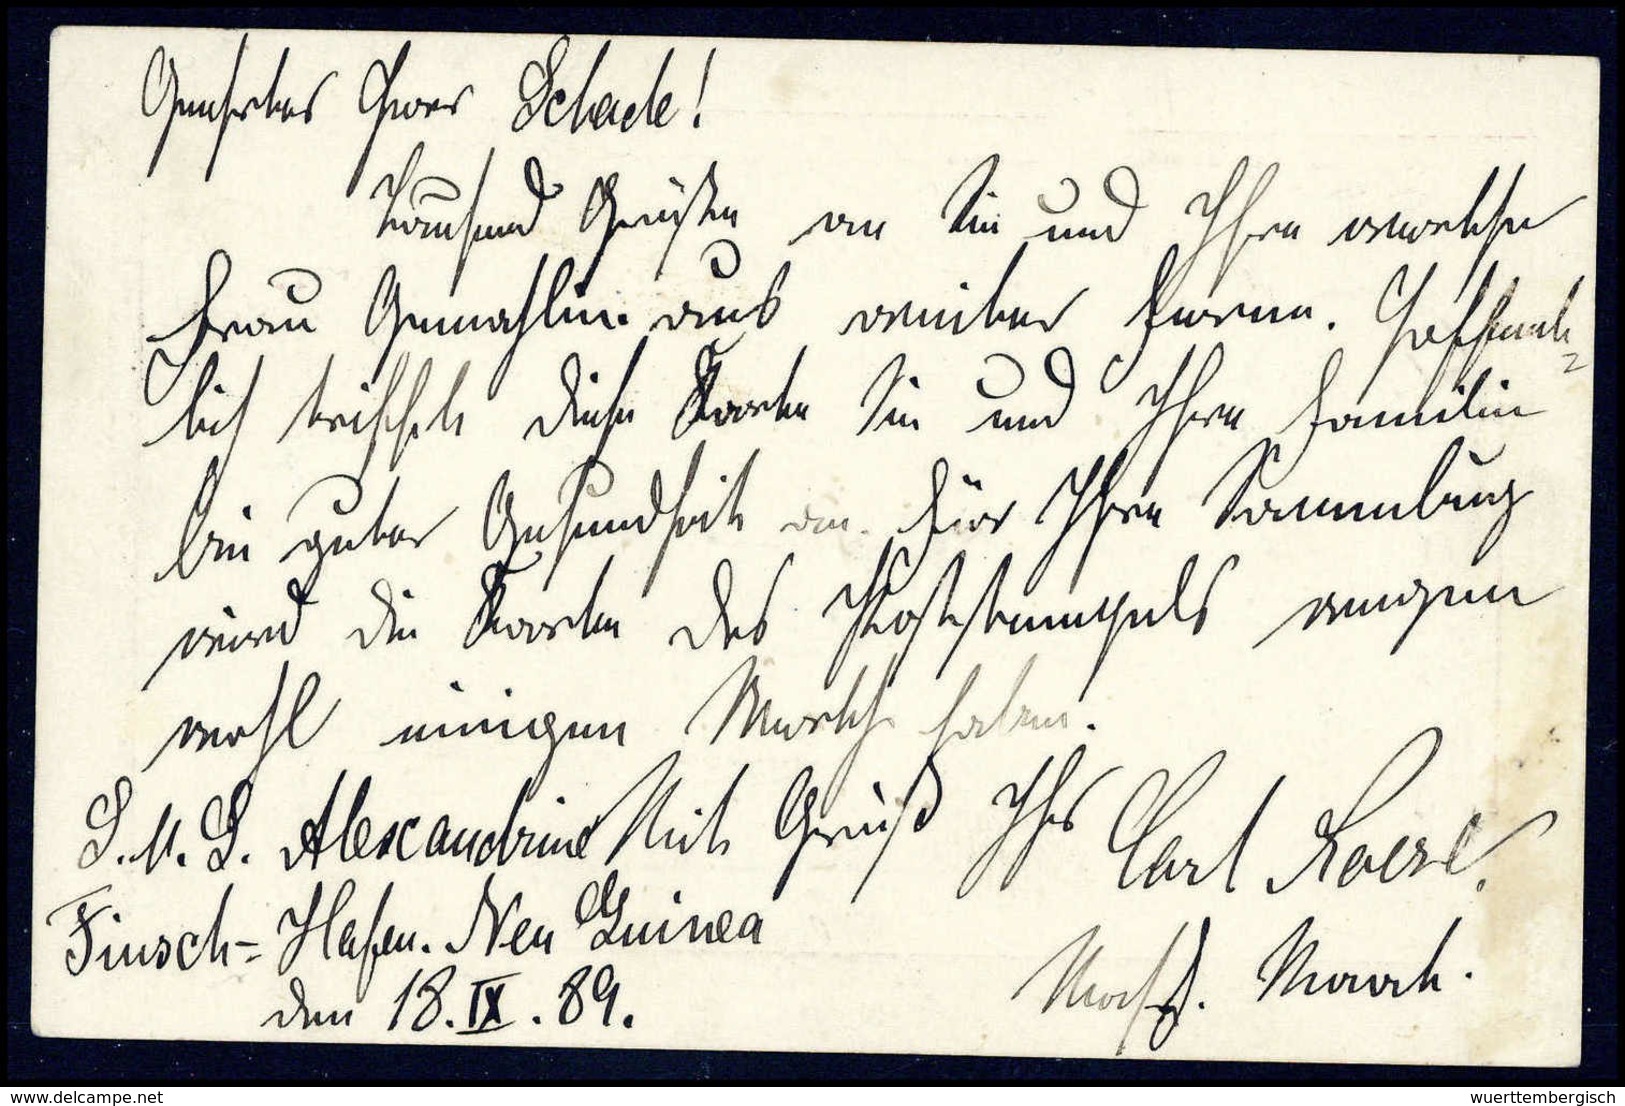 Geehrter Herr Schade!
Tausend Grüße an Sie und Ihre werthe
Frau Gemahlin aus weiter Ferne. Hoffent=
lich trifft diese Karte Sie und Ihre Familie
bei guter Gesundheit an. Für Ihre Sammlung
wird die Karte des Poststempels wegen
wohl einigen Werth haben.
S. M. S. Alexandrine Mit Gruß Ihr Carl
Finsch= Hafen. Neu Guinea
den 18. IX. 89.
delcampe.net
wuerttembergisch